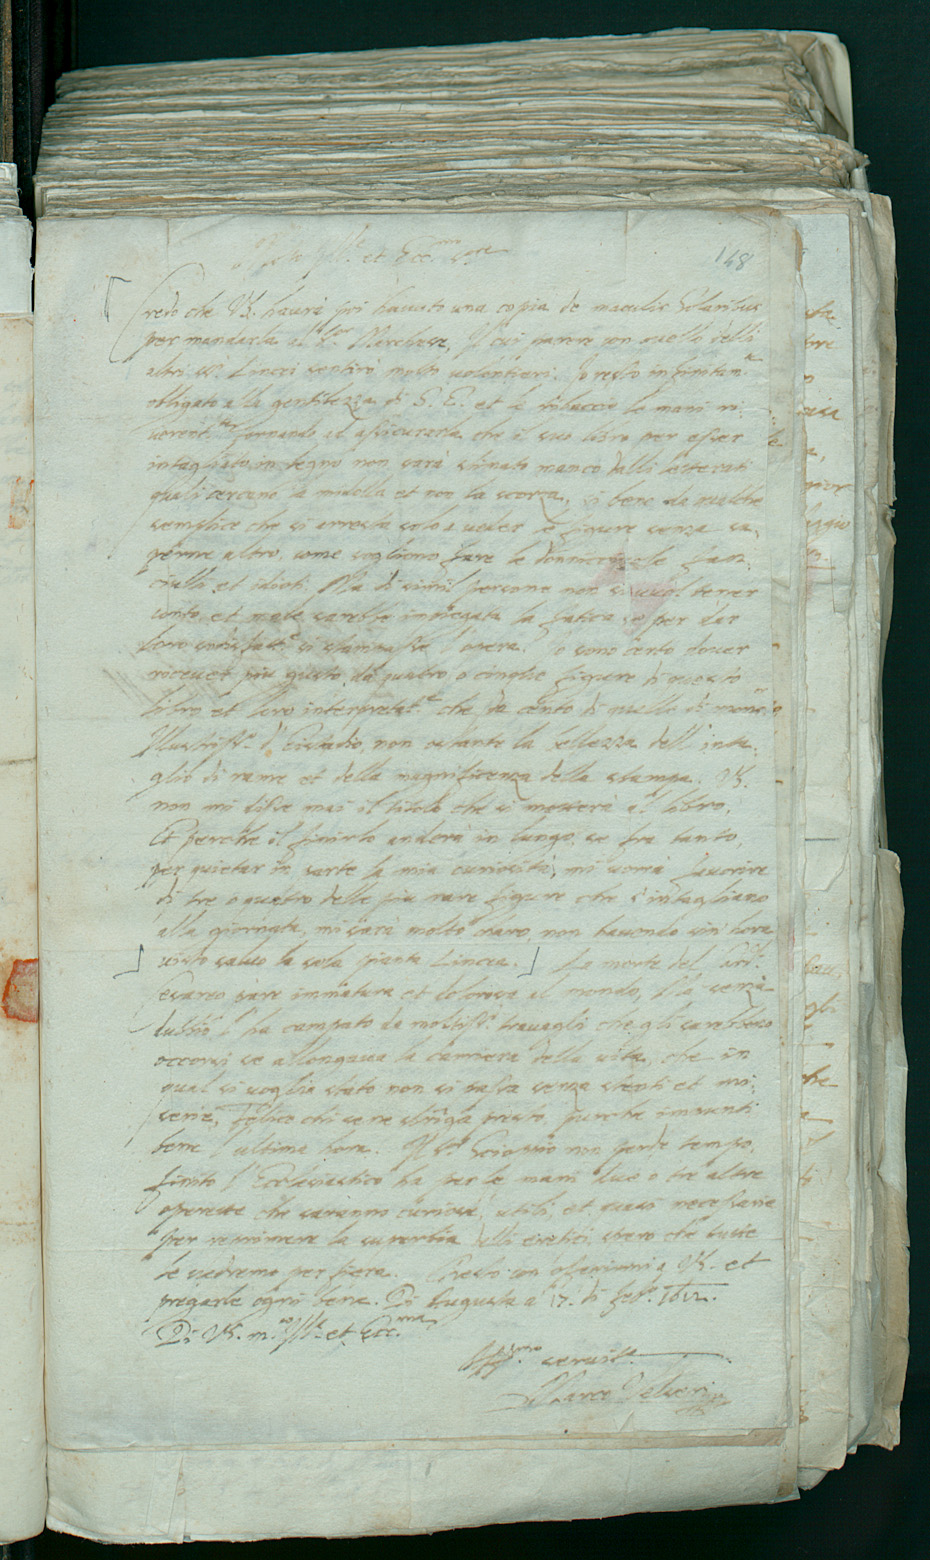 Molto Ill.re et Ecc.mo Sig.re
148
Credo che VS. haurà poi hauuto una copia de maculis Solaribus
per mandarla al S.or Marchese, Il cui parere con quello delli
altri SS.ri Lincei sentirò molto uolentieri. Io resto infinitam.te
obligato alla gentilezza di S. E. et le ribaccio le mani ri
uerent.te tornando ad assicurarla che il suo libro per esser
intagliato in legno non sarà stimato manco dalli letterati
quali cercano la midolla et non la scorza, si bene da qualche
semplice che si arresta solo a ueder le figure senza sa
perne altro, come sogliono fare le donnicciuole fan
ciulli et idioti. Ma di simil persone non si uuol tener
conto, et male sarebbe impiegata la fatica se per dar
loro sodisfat.e si stampasse l'opera. Io sono certo douer
riceuer più gusto da quatro o cinque figure di questo
libro et loro interpretat.e che da cento di quelle di mons.or
Illustriss.o d'Eistadio, non ostante la bellezza dell'inta
glio di rame et della magnificenza della stampa. VS.
non mi disse mai il titolo che si metterà al libro,
Et perche il finirlo anderà in lungo, se fra tanto,
per quietar in parte la mia curiosità, mi uorrà fauorire
di tre o quatro delle piu rare figure che s'intagliano
alla giornata, mi sarà molto caro, non hauendo sin hora
uisto saluo la sola pianta Lincea. La morte del Sri.
Cesareo pare immatura et dolorosa al mondo, ma senza
dubbio l'ha campato da moltiss.i trauagli che gli sarebbero
occorsi se allongaua la carriera della uita, che in
qual si uoglia stato non si passa senza stenti et mi
serie, felice chi se ne sbriga presto purche impunti
bene l'ultima hora. Il S.r Scioppio non perde tempo,
finito l'Ecclesiastico ha per le mani due o tre altre
operette che saranno curiose, utili, et quasi necessarie
per reprimere la superbia delli eretici, spero che tutte
le uedremo per fiera. Che è con offerirmi a VS. et
pregarle ogni bene. Di Augusta a 17. di feb.o 1612.
Di VS. m.to Ill.re et Ecc.ma
Aff.mo seruit.e
Marco Velseri